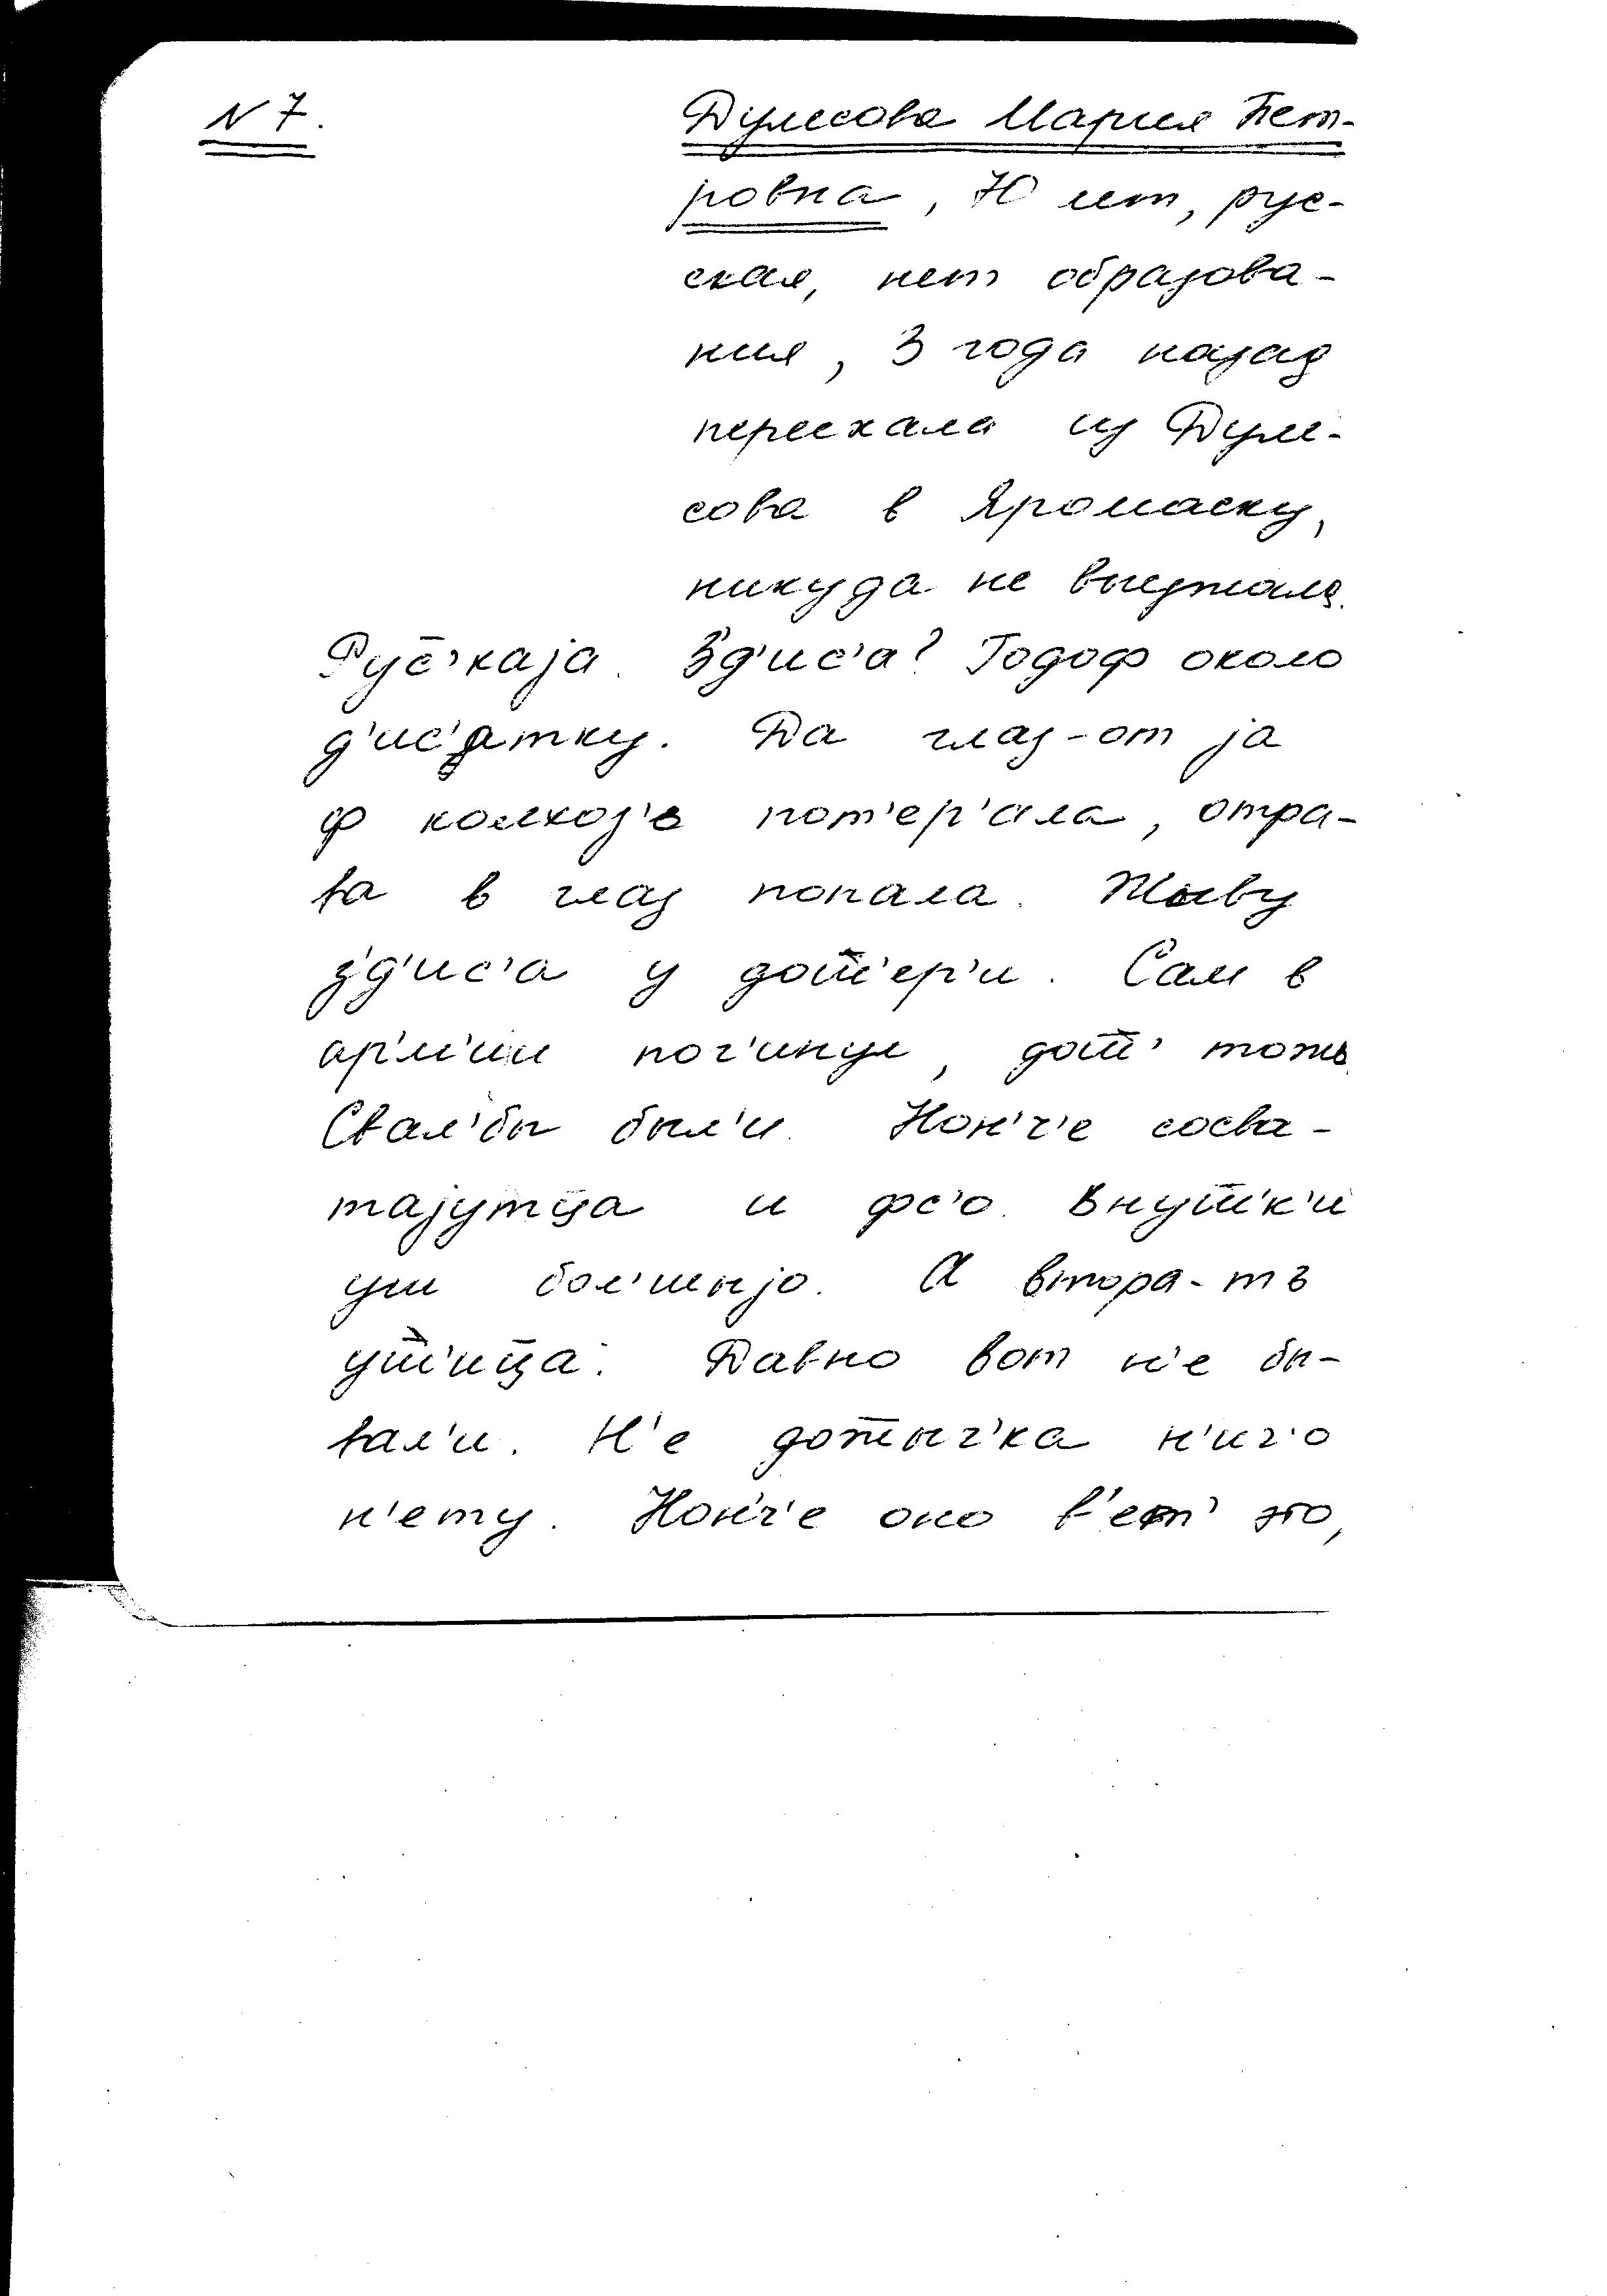 N 7.
Дулесова Мария Пет-
ровна, 70 лет, рус-
ская, нет образова-
ния, 3 года назад
переехала из Дуле-
сова в Яромаску,
никуда не выезжала.
Рус̄'каjа. З'д'ис'а? Годоф около
д'ис'атку. Да глаз-от jа
ф колхоз'ь пот'ер'ала, отра-
ва в глаз попала. Жыву
з'д'ис'а у дот̄'ер'и. Сам в
арм'ии пог'инул, дот̄' тожь.
Свал'бы был'и. Нон'ч'е сосва-
таjутца и фс'о. Внуч̄'к'и
уш бол'шыjо. А втора-тъ
уч̄'ица. Давно вот н'е бы-
вал'и. Н'е дотыч'ка н'ич'о
н'ету. Нон'ч'е оно в'ет' это,